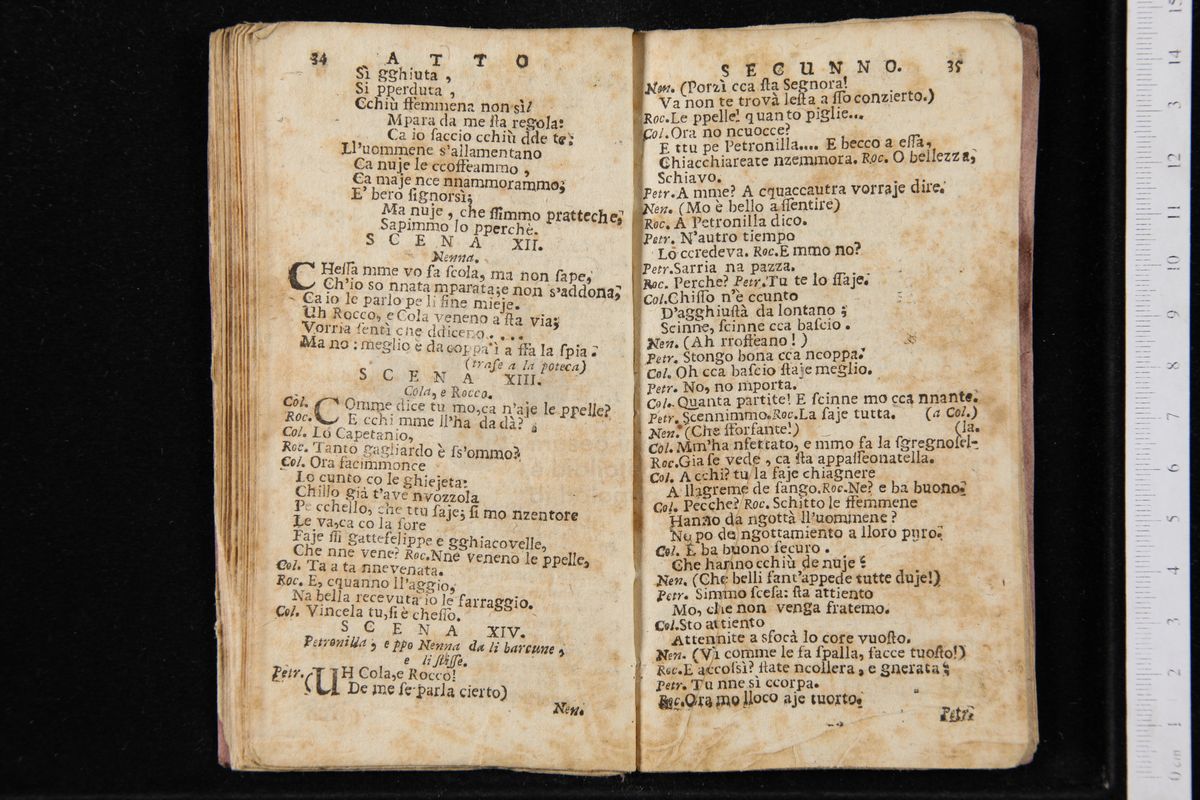 34 A T T O
Sì gghiuta ,
Si pperduta ,
Cchiù ſfemmena non sì!
Mpara da me ſta regola:
Ca io ſaccio cchiù dde te:
Ll'uommene s'allamentano
Ca nuje le ccoffeammo ,
Ca maje nce nnammorammo;
E' bero ſignorsì;
Ma nuje , che ſſimmo pratteche,
Sapimmo lo pperchè.
S C E N A XII.
Nenna.
CHeſſa mme vo fa ſcola, ma non ſape,
Ch'io so nnata mparata;e non s'addona,
Ca io le parlo pe li fine mieje.
Uh Rocco, e Cola veneno a ſta via;
Vorria ſentì che ddiceno. . . .
Ma no : meglio è da coppa ì a ffa la ſpia.
(traſe a la poteca)
S C E N A XIII.
Cola, e Rocco.
Col. COmme dice tu mo,ca n'aje le ppelle?
Roc. E cchi mme ll'ha da dà?
Col. Lo Capetanio,
Roc. Tanto gagliardo è ſs'ommo?
Col. Ora facimmonce
Lo cunto co le ghiejeta:
Chillo già t'ave nvozzola
Pe cchello, che ttu ſaje; ſi mo nzentore
Le va,ca co la ſore
Faje ſſi gattefelippe e gghiacovelle,
Che nne vene? Roc.Nne veneno le ppelle,
Col. Ta a ta nnevenata.
Roc. E, cquanno ll'aggio,
Na bella recevuta io le farraggio.
Col. Vincela tu,ſi è cheſſo.
S C E N A XIV.
Petronilla, e ppo Nenna da li barcune,
e li ſtiſſe.
Petr. (UH Cola,e Rocco!
De me ſe parla cierto)
Nen.
S E C U N N O. 35
Nen. (Porzì cca ſta Segnora!
Va non te trovà leſta a ſſo conzierto.)
Roc.Le ppelle! quanto piglie...
Col.Ora no ncuocce?
E ttu pe Petronilla.... E becco a eſſa,
Chiacchiareate nzemmora. Roc. O bellezza,
Schiavo.
Petr.A mme? A cquaccautra vorraje dire.
Nen. (Mo è bello aſſentire)
Roc. A Petronilla dico.
Petr. N'autro tiempo
Lo ccredeva. Roc.E mmo no?
Petr.Sarria na pazza.
Roc. Perche? Petr.Tu te lo ſſaje.
Col.Chiſſo n'è ccunto
D'agghiuſtà da lontano ;
Scinne, ſcinne cca baſcio .
Nen. (Ah rroffeano ! )
Petr. Stongo bona cca ncoppa.
Col. Oh cca baſcio ſtaje meglio.
Petr. No, no mporta.
Col. Quanta partite! E ſcinne mo cca nnante.
Petr.Scennimmo.Roc.La ſaje tutta. (a Col.)
Nen. (Che fforfante!) (la.
Col. Mm'ha nferrato, e mmo fa la ſgregnoſel-
Roc.Gia ſe vede , ca ſta appaſſeonatella.
Col. A cchi? tu la faje chiagnere
A llagreme de ſango.Roc.Ne? e ba buono.
Col. Pecche? Roc. Schitto le ffemmene
Hanno da ngottà ll'uommene ?
No po de ngottamiento a lloro puro.
Col. E ba buono ſecuro .
Che hanno cchiù de nuje ?
Nen. (Che belli ſant'appede tutte duje!)
Petr. Simmo ſceſa: ſta attiento
Mo, che non venga fratemo.
Col.Sto attiento
Attennite a sfocà lo core vuoſto.
Nen. (Vì comme le fa ſpalla, facce tuoſto!)
Roc.E accoſsì? ſtate ncollera, e gnerata?
Petr. Tu nne sì ccorpa.
Roc.Ora mo lloco aje tuorto.
Petr.